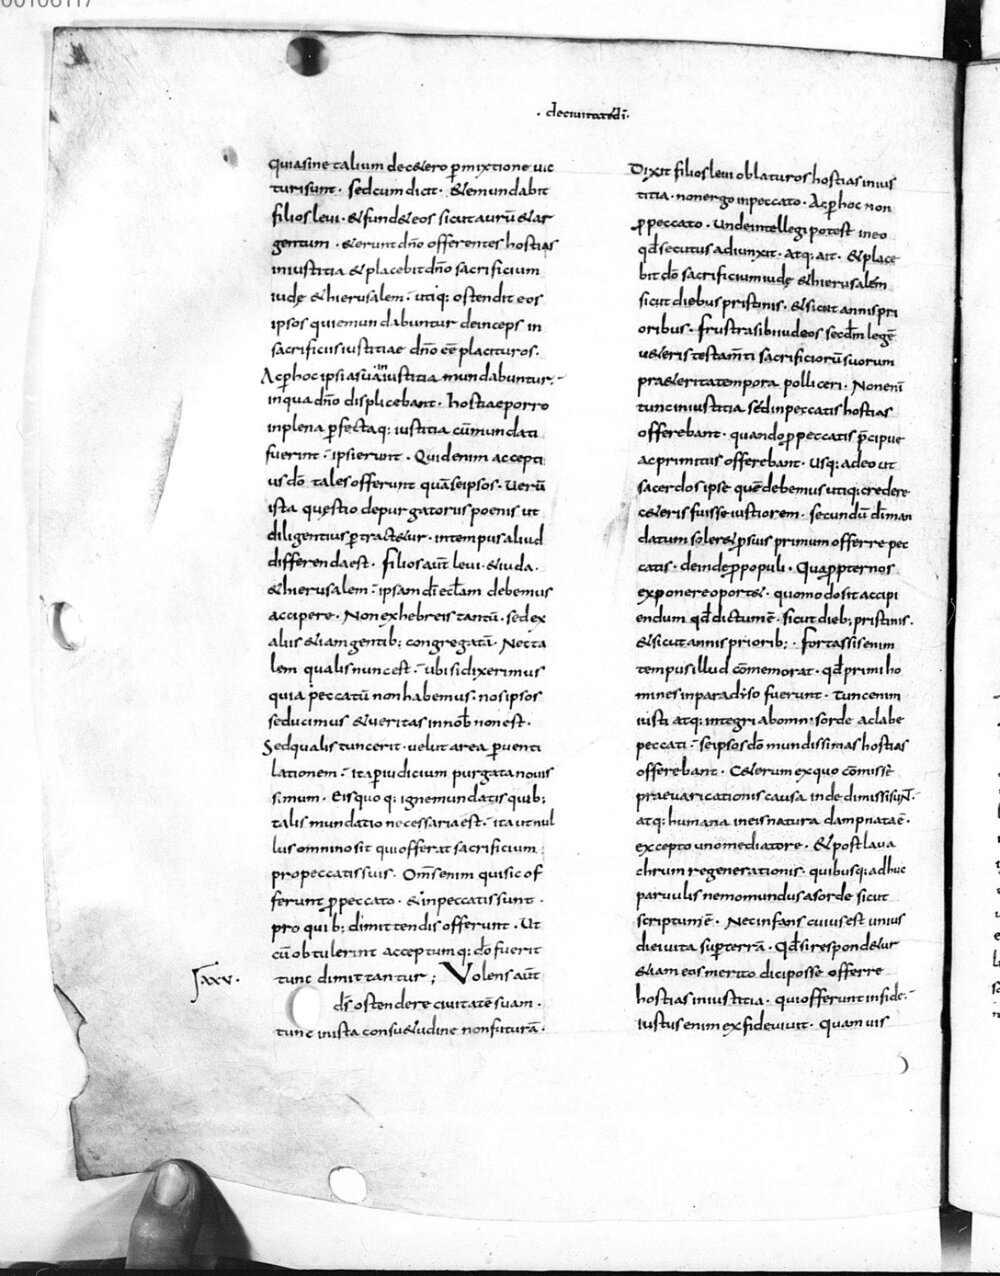 00106117
· deciuitatedi·
quiasine talium decetero pmixtione uic
turisunt · sedcum dicit · &emundabit
filioslevi · &fund&eos sicutaurū &ar
gentum · &erunt dn̄o offerentes hostias
iniustitia &placebit dn̄o sacrificium
iudę &hierusalem · utiq; ostendit eos
ipsos quiemundabuntur deinceps in
sacrificiis iustitiae dn̄o eē placituros ·
Acp̄hoc ipsi asua iniustitia mundabuntur ·
inqua dn̄o displicebant · hostiae porro
inplena pfectaq; iustitia cūmundati
fuerint · ipsierunt · Quidenim accepti
us dō tales offerunt quāseipsos · Uerū
ista quęstio depurgatoriis poenis ut
diligentius ptract&ur · intempus aliud
differenda est · filios aut̄ leui · &iuda ·
&hierusalem · ipsam dī ecl̄am debemus
accipere · Nonexhebreis tantū · sedex
aliis &iamgentib; congregatā · Necta
lem qualisnuncest · ubisidixerimus
quia peccatū nonhabemus · nosipsos
seducimus &ueritas innob̄ nonest ·
Sedqualis tuncerit · uelut area puenti
lationem · itapiudicium purgatanouis
simum · Eisquoq; ignemundatis quib;
talis mundatio necessariaest · itautnul
lus omninosit quiofferat sacrificium
propeccatissuis · Om̄s enim quisic of
ferunt ppeccato · &inpeccatissunt ·
pro quib; dimittendis offerunt · Ut
cū obtulerint acceptumq; dō fuerit
tunc dimittantur ; Volens aut̄
xxv ·
ds̄ ostendere ciuitatē suam ·
tunc inista consu&udine nonfuturā ·
Dixit filioslevi oblaturos hostias inius
titia · nonergo inpeccato · Acp̄hoc non
ppeccato · Undeintellegi potest ineo
qd̄ secutus adiunxit · atq; ait · &place
bit dō sacrificium iudę &hierusalem
sicut diebus pristinis · &sicut annis pri
oribus · frustrasibiiudeos secd̄m legē
u&eris testam̄ti sacrificiorū suorum
praeteritatempora polliceri · Nonenī
tunciniustitia sedinpeccatis hostias
offerebant · quandoppeccatis p̄cipue
acprimitus offerebant · Usq; adeo ut
sacerdos ipse quēdebemus utiq; credere
c&eris fuisse iustiorem · secundū dī man
datum soler& psuis primum offerre pec
catis · deindeppopuli · Quapp̄ternos
exponereoport& · quomodosit accipi
endum qd̄ dictumē · sicut dieb; pristinis ·
&sicut annis priorib; · fortassisenim
tempusillud cōmemorat · qd̄ primi ho
mines inparadiso fuerunt · Tuncenim
iusti atq; integri abomn̄ sorde aclabe
peccati · seipsos dō mundissimas hostias
offerebant · C&erum exquo cōmissē
praeuaricationis causa inde dimissisunt ·
atq; humana ineisnatura dampnataē ·
excepto unomediatore · &postlaua
chrum regenerationis · quibusq; adhuc
paruulis nemomundus asorde sicut
scriptumē · Necinfans cuiusest unius
dieiuita superterrā · Qd̄sirespond&ur
&iam eosmerito diciposse offerre
hostias iniustitia · quiofferunt infide ·
iustus enim exfideuiuit · quamuis